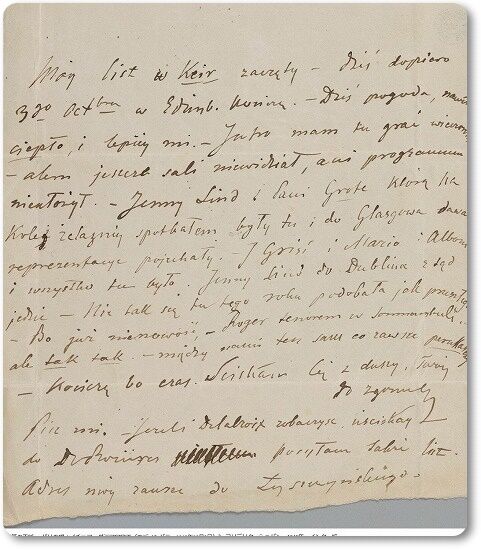 Mój list w Keir zaczęty – dziś dopiero
3go Octbra w Edinb. kończę. – Dziś pogoda, nawet
ciepło, i lepiej mi. – Jutro mam tu grać wieczorem
– alem jeszcze sali niewidział, ani programmu
nieułożył. – Jenny Lind i Pani Grote którą na
Kolej żelaznej spotkałem były tu i do Glasgowa dawać
reprezentacye pojechały. – I Grisi i Mario i Alboni
i wszystko tu było. Jenny Lind do Dublina ztąd
jedzie – Nie tak się tu tego roku podobała jak przeszłego
– Bo już nienowość, – Roger tenorem w
ale tak tak. – między nami ten sam co zawsze
– Kończę bo czas. Ściskam Cię z duszy, Twój
do zgonu
Pisz mi. – Jeżeli Delacroix zobaczysz, uściskaj
do posyłam sobie list.
Adres mój zawsze do Łyszczyńskiego.